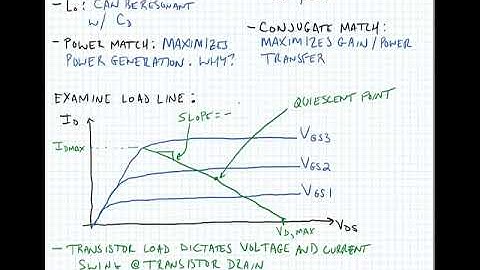 - Lo: CAN BE RESONANT
W/ C3
- POWER MATCH: MAXIMIZES
POWER GENERATION. WHY?
- CONJUGATE MATCH:
MAXIMIZES GAIN/POWER
TRANSFER
EXAMINE LOAD LINE:
QUIESCENT POINT
SLOPE = -
ID
IDMAX
VGS3
VGS2
VGS1
VD,MAX
VDS
- TRANSISTOR LOAD DICTATES VOLTAGE AND CURRENT
SWING @ TRANSISTOR DRAIN